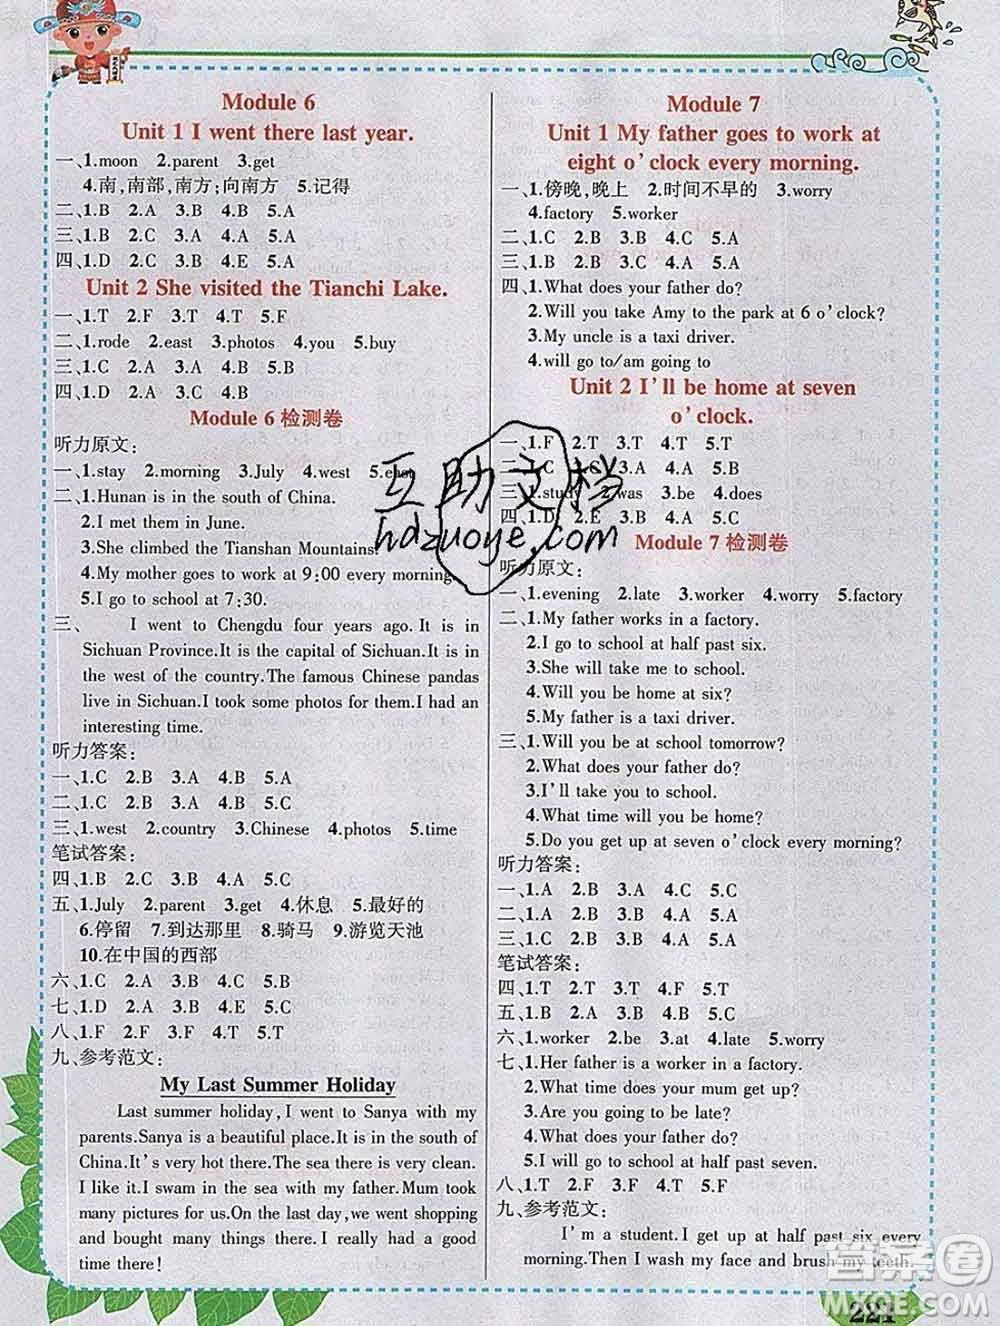 Module 6
Unit 1 I went there last year.
一、1.moon 2.parent 3.get
4.南,南部,南方;向南方 5.记得
二、1.B 2.A 3.B 4.B 5.A
三、1.B 2.C 3.A 4.B 5.A
四、1.D 2.C 3.B 4.E 5.A
Unit 2 She visited the Tianchi Lake.
一、1.T 2.F 3.T 4.T 5.F
二、1.rode 2.east 3.photos 4.you 5.buy
三、1.C 2.A 3.B 4.A 5.B
四、1.D 2.A 3.E 4.B 5.C
Module 6 检测卷
听力原文:
一、1.stay 2.morning 3.July 4.west 5.east
二、1.Hunan is in the south of China.
2.I met them in June.
3.She climbed the Tianshan Mountains.
4.My mother goes to work at 9:00 every morning.
5.I go to school at 7:30.
三、 I went to Chengdu four years ago.It is in
Sichuan Province.It is the capital of Sichuan.It is
in the west of the country.The famous Chinese pandas
live in Sichuan.I took some photos for them.I had an
interesting time.
听力答案:
一、1.C 2.B 3.A 4.B 5.A
二、1.C 2.B 3.A 4.C 5.B
三、1.west 2.country 3.Chinese 4.photos 5.time
笔试答案:
四、1.B 2.C 3.A 4.B 5.C
五、1.July 2.parent 3.get 4.休息 5.最好的
6.停留 7.到达那里 8.骑马 9.游览天池
10.在中国的西部
六、1.C 2.A 3.B 4.C 5.B
七、1.D 2.A 3.B 4.E 5.C
八、1.T 2.F 3.F 4.T 5.T
九、参考范文:
My Last Summer Holiday
Last summer holiday,I went to Sanya with my
parents.Sanya is a beautiful place.It is in the south of
China.It's very hot there.The sea there is very clean.
I like it.I swam in the sea with my father.Mum took
many pictures for us.On the last day,we went shopping
and bought many things there.I really had a good
time there!
Module 7
Unit 1 My father goes to work at
eight o'clock every morning.
一、1.傍晚,晚上 2.时间不早的 3.worry
4.factory 5.worker
二、1.C 2.B 3.B 4.C 5.A
三、1.C 2.B 3.B 4.A 5.A
四、1.What does your father do?
2.Will you take Amy to the park at 6 o'clock?
3.My uncle is a taxi driver.
4.will go to/am going to
Unit 2 I'll be home at seven
o'clock.
一、1.F 2.T 3.T 4.T 5.T
二、1.C 2.C 3.C 4.A 5.B
三、1.study 2.was 3.be 4.does
四、1.D 2.E 3.B 4.A 5.C
Module 7 检测卷
听力原文:
一、1.evening 2.late 3.worker 4.worry 5.factory
二、1.My father works in a factory.
2.I go to school at half past six.
3.She will take me to school.
4.Will you be home at six?
5.My father is a taxi driver.
三、1.Will you be at school tomorrow?
2.What does your father do?
3.I'll take you to school.
4.What time will you be home?
5.Do you get up at seven o'clock every morning?
听力答案:
一、1.A 2.B 3.A 4.B 5.C
二、1.A 2.B 3.A 4.C 5.C
三、1.C 2.B 3.C 4.A 5.A
笔试答案:
四、1.T 2.T 3.T 4.T 5.F
五、1.B 2.B 3.A 4.B 5.C
六、1.worker 2.be 3.at 4.late 5.worry
七、1.Her father is a worker in a factory.
2.What time does your mum get up?
3.Are you going to be late?
4.What does your father do?
5.I will go to school at half past seven.
八、1.T 2.F 3.F 4.T 5.F
九、参考范文:
I'm a student.I get up at half past six every
morning.Then I wash my face and brush my teeth.
221
互助文档
hdzuoye.com
答案卷
MXQE.COM